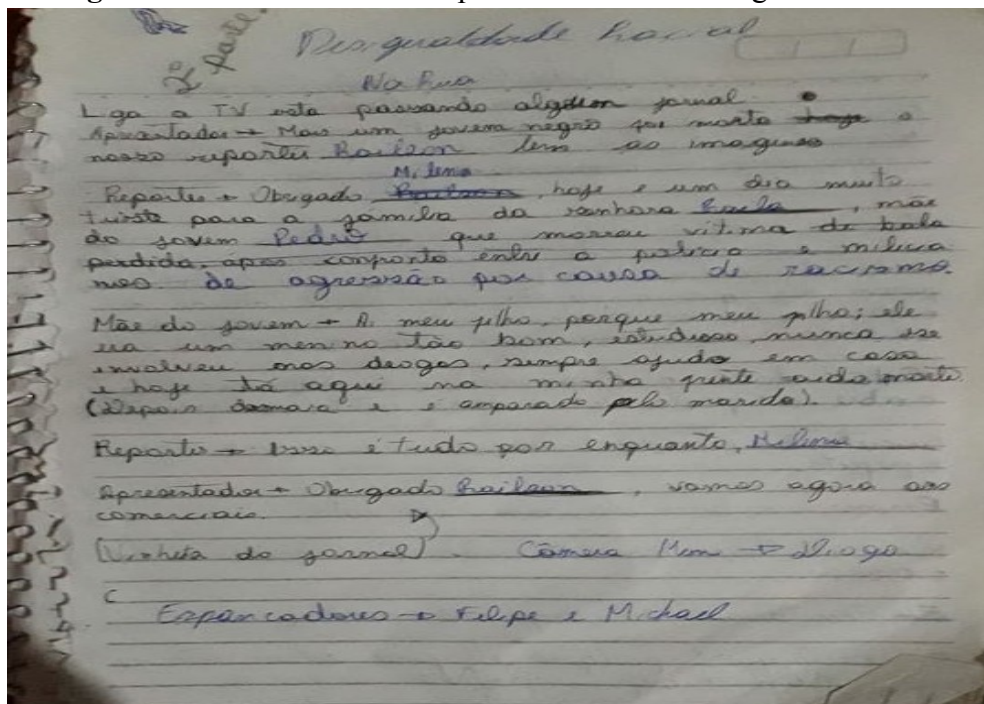 2º parte.
Desigualdade Racial
Na Rua
Liga a TV esta passando algum jornal.
Apresentador → Mais um jovem negro foi morto hoje o
nosso reporter Railson tem as imagens
Milena
Reporter → Obrigado Railson, hoje e um dia muito
triste para a família da senhora Raila, mãe
do jovem Pedro que morreu vitima de bala
perdida, apos confronto entre a policia e milicia
mas de agressão por causa de racismo.
Mãe do jovem → A meu filho, porque meu filho; ele
era um menino tão bom, estudioso, nunca se
envolveu nas drogas, sempre ajudo em casa
e hoje tá aqui na minha frente morto
(Depois desmaia e é amparado pelo marido).
Reporter → Isso é tudo por enquanto, Milena
Apresentador → Obrigado Railson, vamos agora aos
comerciais.
(Vinheta do jornal). Câmera Mem → Diogo
C
Espancadores → Felipe e Michael